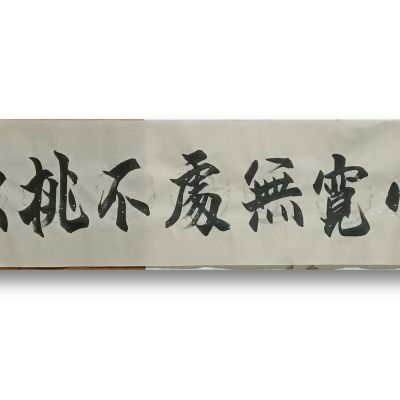 寬無處不桃